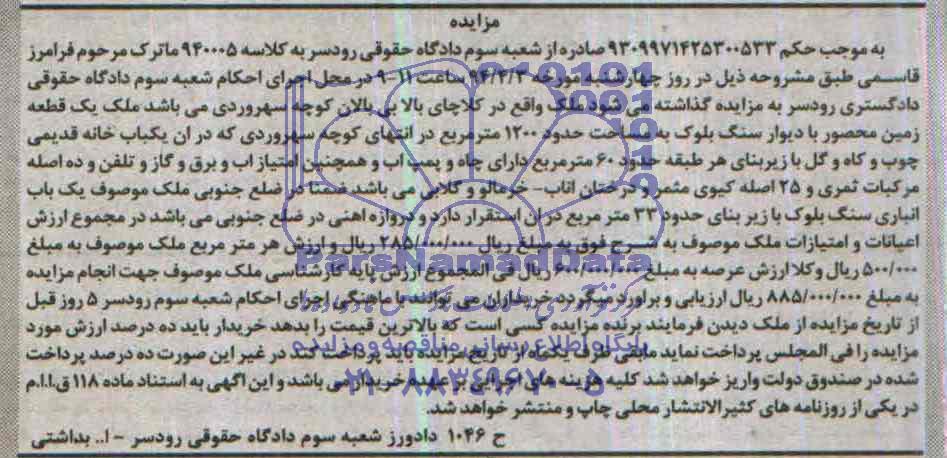 مزایده
به موجب حکم ۹۳۰۹۹۷۱۴۲۵۳۰۰۵۳۳ صادره از شعبه سوم دادگاه حقوقی رودسر به کلاسه ۹۴۰۰۰۵ ماترک مرحوم فرامرز
قاسمی طبق مشروحه ذیل در روز چهارشنبه مورخه ۹۴/۴/۳ ساعت ۱۱-۹ در محل اجرای احکام شعبه سوم دادگاه حقوقی
دادگستری رودسر به مزایده گذاشته می شود ملک واقع در کلاچای بالا بی بالان کوچه سهروردی می باشد ملک یک قطعه
زمین محصور با دیوار سنگ بلوک به مساحت حدود ۱۲۰۰ مترمربع در انتهای کوچه سهروردی که در ان یکباب خانه قدیمی
چوب و کاه و گل با زیربنای هر طبقه حدود ۶۰ مترمربع دارای چاه و پمپ اب و همچنین امتیاز اب و برق و گاز و تلفن و ده اصله
مرکبات ثمری و ۲۵ اصله کیوی مثمر و درختان اناب- خرمالو و گلابی می باشد ضمنا در ضلع جنوبی ملک موصوف یک باب
انباری سنگ بلوک با زیر بنای حدود ۳۳ متر مربع در ان استقرار دارد و دروازه اهنی در ضلع جنوبی می باشد در مجموع ارزش
اعیانات و امتیازات ملک موصوف به شرح فوق به مبلغ ریال ۲۸۵/۰۰۰/۰۰۰ ریال و ارزش هر متر مربع ملک موصوف به مبلغ
۵۰۰/۰۰۰ ریال وکلا ارزش عرصه به مبلغ ۶۰۰/۰۰۰/۰۰۰ ریال فی المجموع ارزش پایه کارشناسی ملک موصوف جهت انجام مزایده
به مبلغ ۸۸۵/۰۰۰/۰۰۰ ریال ارزیابی و براورد میگردد خریداران می توانند با ماهنگی اجرای احکام شعبه سوم رودسر ۵ روز قبل
از تاریخ مزایده از ملک دیدن فرمایند برنده مزایده کسی است که بالاترین قیمت را بدهد خریدار باید ده درصد ارزش مورد
مزایده را فی المجلس پرداخت نماید مابقی ظرف یکماه از تاریخ مزایده باید پرداخت کند در غیر این صورت ده درصد پرداخت
شده در صندوق دولت واریز خواهد شد کلیه هزینه های اجرایی بر عهده خریدار می باشد و این اگهی به استناد ماده ۱۱۸ ق.ا.ا.م
در یکی از روزنامه های کثیرالانتشار محلی چاپ و منتشر خواهد شد.
ح ۱۰۴۶ دادورز شعبه سوم دادگاه حقوقی رودسر - ا.. بداشتی
ParsNamadData
پایگاه اطلاع رسانی مناقصه و مزایده
۰۲۱-۸۸۳۴۹۶۷۰-۵